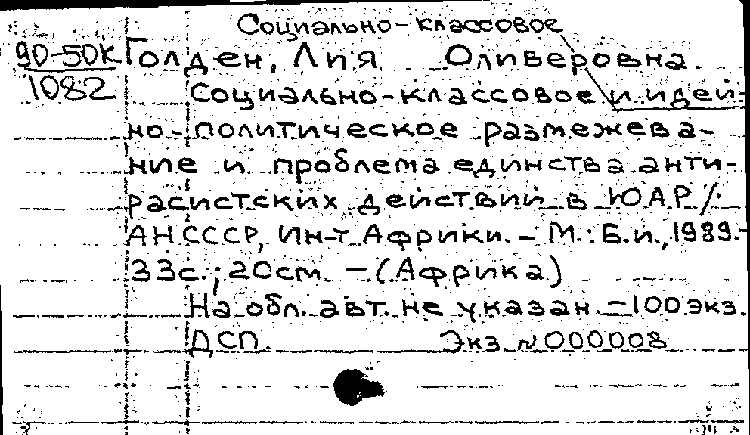 Социально-классовое
90-50К Голден, Лия Оливеровна.
1082 Социально-классовое и идей-
но-политическое размежева-
ние и проблема единства анти-
расистских действий в ЮАР /
АН СССР, Ин-т Африки. - М.: Б.и., 1989. -
33с.; 20см. - (Африка)
На обл. авт. не указан. - 100 экз.
ДСП. Экз. №000008